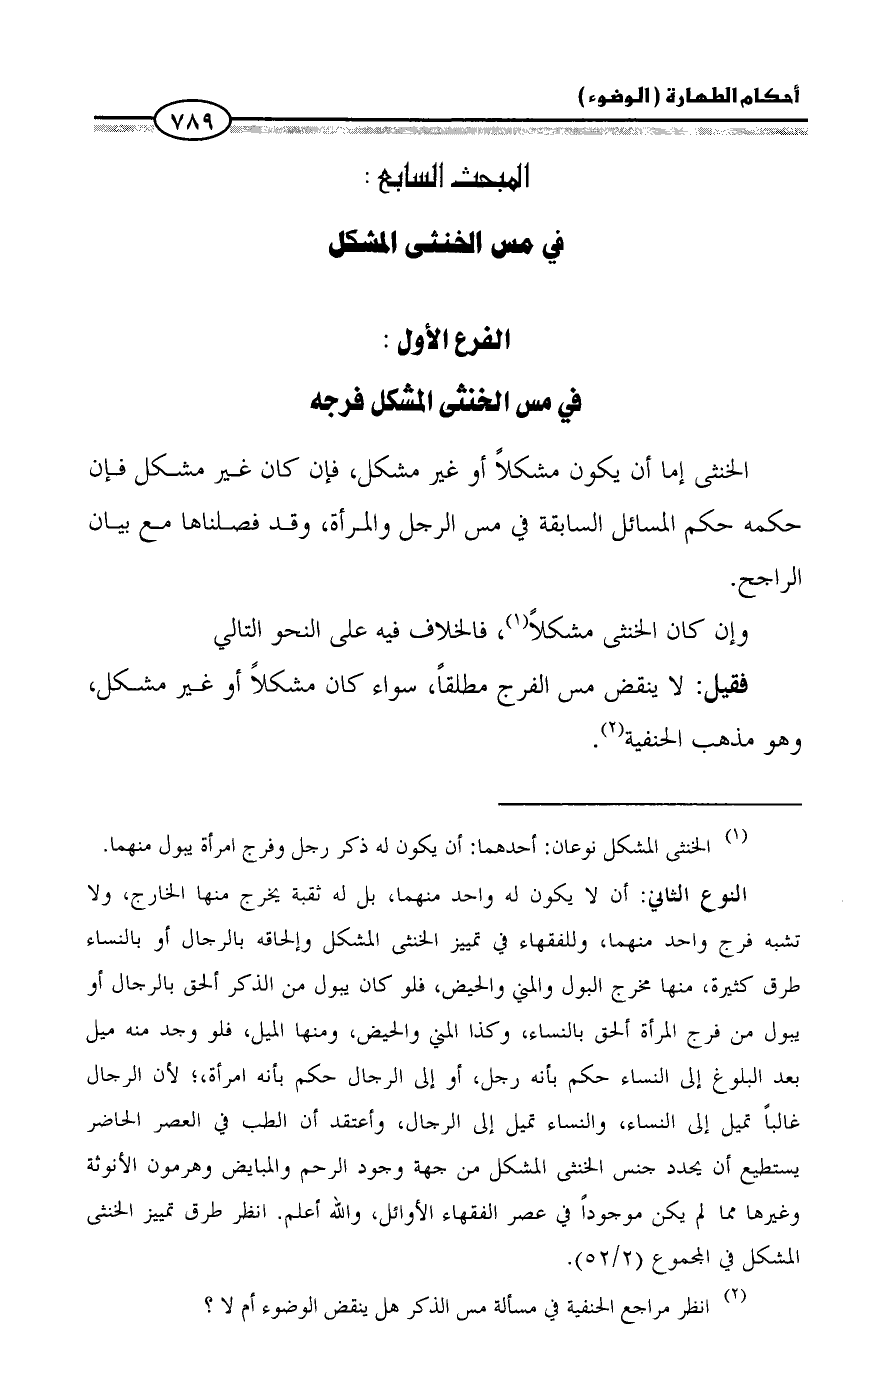 أحكام الطهارة (الوضوء)
٧٨٩
المبحث السابع :
في مس الخنثى المشكل
الفرع الأول :
في مس الخنثى المشكل فرجه
الخنثى إما أن يكون مشكلاً أو غير مشكل، فإن كان غير مشكل فإن
حكمه حكم المسائل السابقة في مس الرجل والمرأة، وقد فصلناها مع بيان
الراجح.
وإن كان الخنثى مشكلاً(١)، فالخلاف فيه على النحو التالي
فقيل: لا ينقض مس الفرج مطلقاً، سواء كان مشكلاً أو غير مشكل،
وهو مذهب الحنفية(٢).
(١) الخنثى المشكل نوعان: أحدهما: أن يكون له ذكر رجل وفرج امرأة يبول منهما.
النوع الثاني: أن لا يكون له واحد منهما، بل له ثقبة يخرج منها الخارج، ولا
تشبه فرج واحد منهما، وللفقهاء في تمييز الخنثى المشكل وإلحاقه بالرجال أو بالنساء
طرق كثيرة، منها مخرج البول والمني والحيض، فلو كان يبول من الذكر ألحق بالرجال أو
يبول من فرج المرأة ألحق بالنساء، وكذا المني والحيض، ومنها الميل، فلو وجد منه ميل
بعد البلوغ إلى النساء حكم بأنه رجل، أو إلى الرجال حكم بأنه امرأة،؛ لأن الرجال
غالباً تميل إلى النساء، والنساء تميل إلى الرجال، وأعتقد أن الطب في العصر الحاضر
يستطيع أن يحدد جنس الخنثى المشكل من جهة وجود الرحم والمبايض وهرمون الأنوثة
وغيرها مما لم يكن موجوداً في عصر الفقهاء الأوائل، والله أعلم. انظر طرق تمييز الخنثى
المشكل في المجموع (٥٢/٢).
(٢) انظر مراجع الحنفية في مسألة مس الذكر هل ينقض الوضوء أم لا ؟